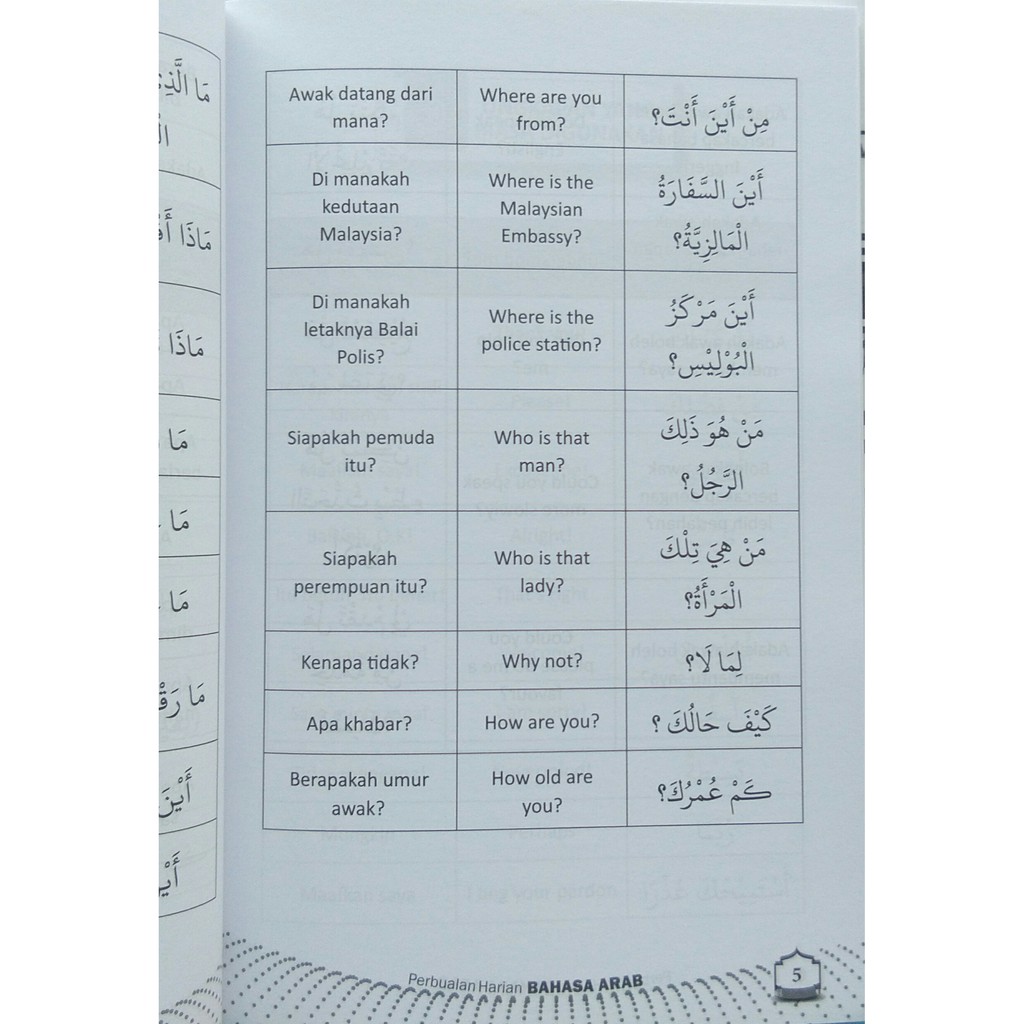 مَا الَّذِي
مَاذَا
مَاذَا
مَا
مَا
مَا
مَا
أَيْنَ
Awak datang dari
mana?
Where are you
from?
مِنْ أَيْنَ أَنْتَ؟
Di manakah
kedutaan
Malaysia?
Where is the
Malaysian
Embassy?
أَيْنَ السَّفَارَةُ
الْمَالِزِيَّةُ؟
Di manakah
letaknya Balai
Polis?
Where is the
police station?
أَيْنَ مَرْكَزُ
الْبُوْلِيْسِ؟
Siapakah pemuda
itu?
Who is that
man?
مَنْ هُوَ ذَلِكَ
الرَّجُلُ؟
Siapakah
perempuan itu?
Who is that
lady?
مَنْ هِيَ تِلْكَ
الْمَرْأَةُ؟
Kenapa tidak?
Why not?
لِمَا لَا؟
Apa khabar?
How are you?
كَيْفَ حَالُكَ ؟
Berapakah umur
awak?
How old are
you?
كَمْ عُمْرُكَ؟
Perbualan Harian BAHASA ARAB
5